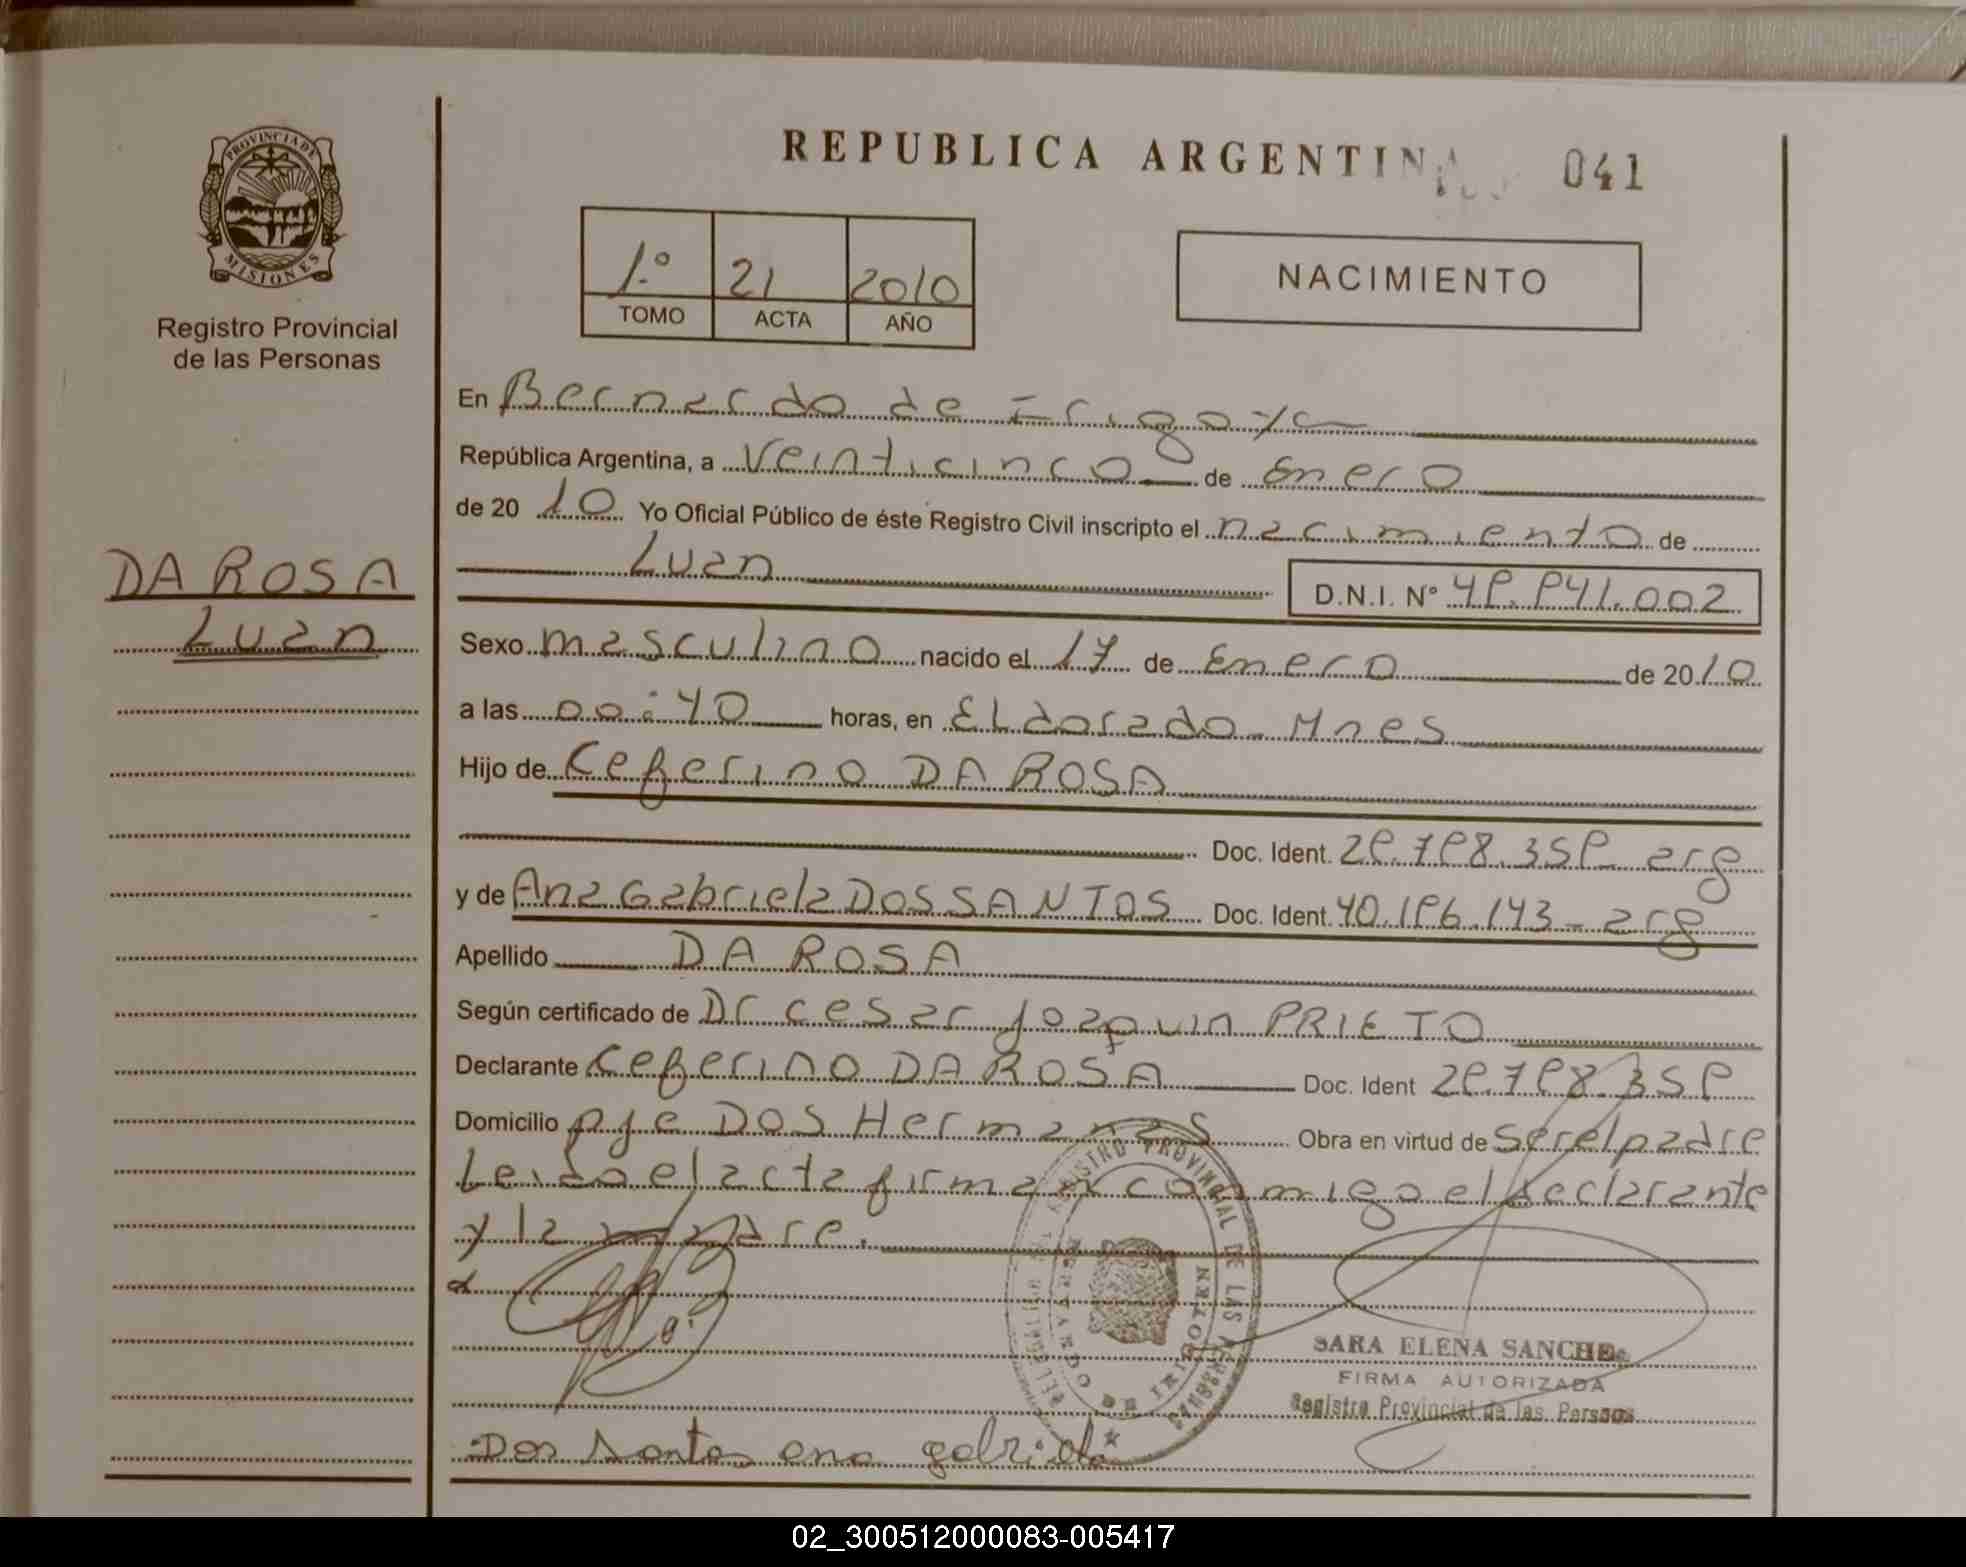 REPUBLICA ARGENTINA
041
PROVINCIA DE
MISIONES
Registro Provincial
de las Personas
1.º 21 2010
TOMO ACTA AÑO
NACIMIENTO
En Bernardo de Irigoyen
República Argentina, a Veinticinco de Enero
de 20 10 Yo Oficial Público de éste Registro Civil inscripto el nacimiento de
Luan
D.N.I. Nº 49.941.002
DA ROSA
Luan
Sexo masculino nacido el 17 de Enero de 20 10
a las 00:40 horas, en ELdorado-Mnes
Hijo de Ceferino DA ROSA
Doc. Ident. 29.798.359 arg
y de Ana Gabriela DOS SANTOS Doc. Ident. 40.196.143 - arg
Apellido DA ROSA
Según certificado de Dr Cesar Joaquin PRIETO
Declarante Ceferino DA ROSA Doc. Ident 29.798.359
Domicilio pje DOS Hermanas Obra en virtud de ser el padre
Leido el acta firman conmigo el declarante
y la madre.
REGISTRO PROVINCIAL DE LAS PERSONAS
BERNARDO DE IRIGOYEN
SARA ELENA SANCHEZ
FIRMA AUTORIZADA
Registro Provincial de las Personas
Dos Santos ana gabriela
02_300512000083-005417